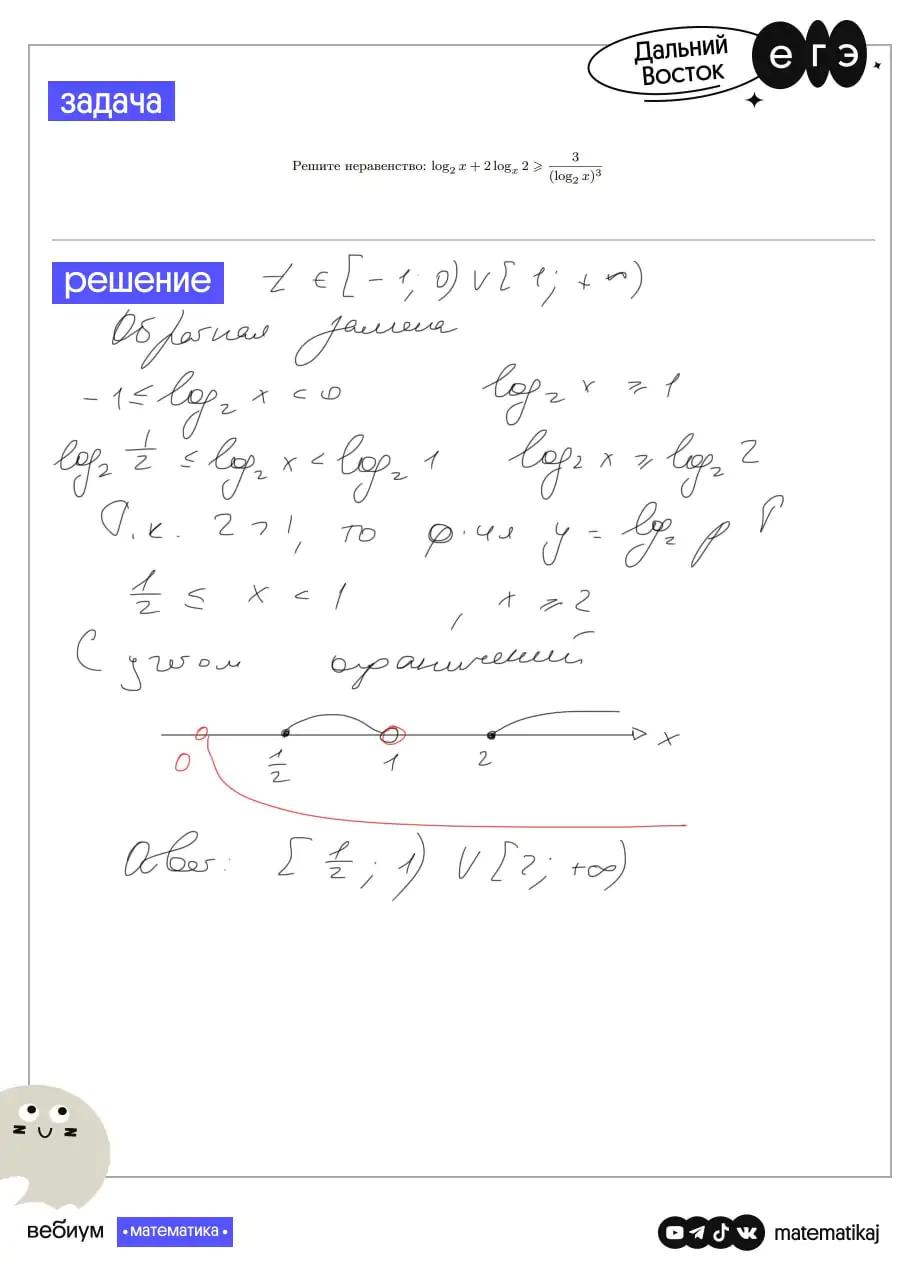 Дальний Восток
егэ
задача
Решите неравенство: log₂ x + 2 logₓ 2 ⩾ 3/(log₂ x)³
решение
t ∈ [-1; 0) ∪ [1; +∞)
Обратная замена
-1 ≤ log₂ x < 0 log₂ x ⩾ 1
log₂ 1/2 ≤ log₂ x < log₂ 1 log₂ x ⩾ log₂ 2
Т.к. 2 > 1, то ф-ия y = log₂ p ↑
1/2 ≤ x < 1 , x ⩾ 2
С учётом ограничений
0 1/2 1 2 x
Ответ: [1/2; 1) ∪ [2; +∞)
вебиум
• математика •
matematikaj